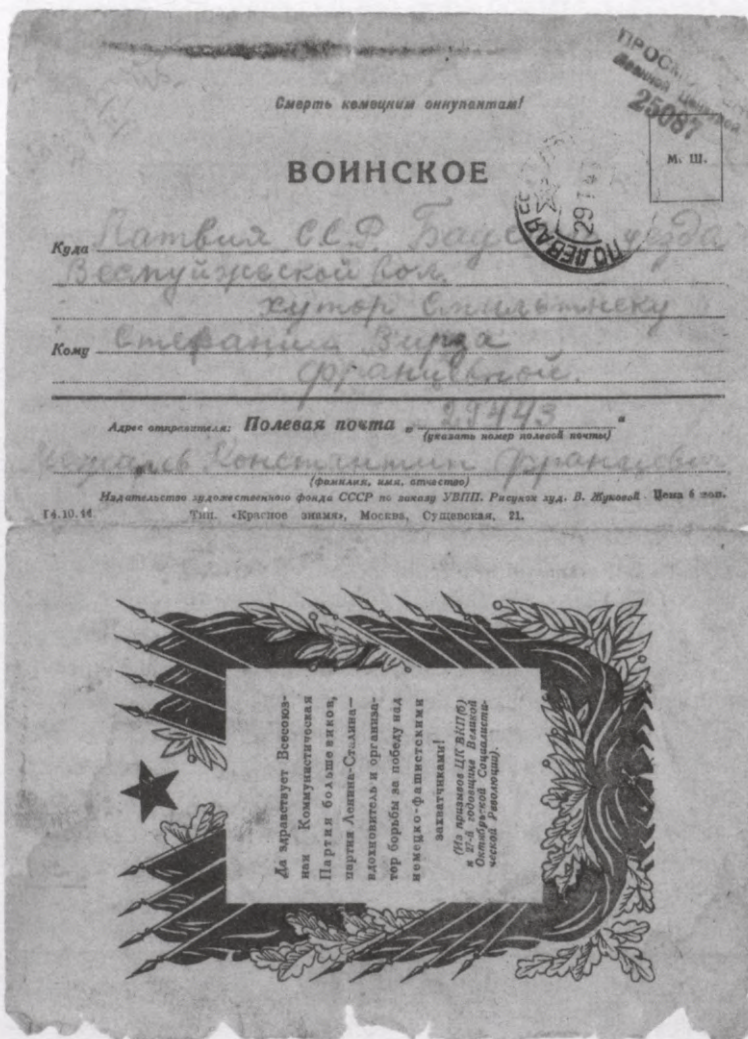 Смерть немецким оккупантам!
ПРОС
Военной Цензурой
25087
ВОИНСКОЕ
М. Ш.
ПОЛЕВАЯ
29
Куда Латвия ССР уезда
вол.
хутор
Кому Стефании Вирза
Францевной.
Адрес отправителя: Полевая почта „ 29443 “
(указать номер полевой почты)
Константин Францевич
(фамилия, имя, отчество)
Издательство художественного фонда СССР по заказу УВПП. Рисунок худ. В. Жуковой Цена 6 коп.
14.10.44 Тип. «Красное знамя», Москва, Сущевская, 21.
Да здравствует Всесоюз-
ная Коммунистическая
Партия большевиков,
партия Ленина—Сталина—
вдохновитель и организа-
тор борьбы за победу над
немецко-фашистскими
захватчиками!
(Из призывов ЦК ВКП(б)
к 27-й годовщине Великой
Октябрьской Социалисти-
ческой Революции).